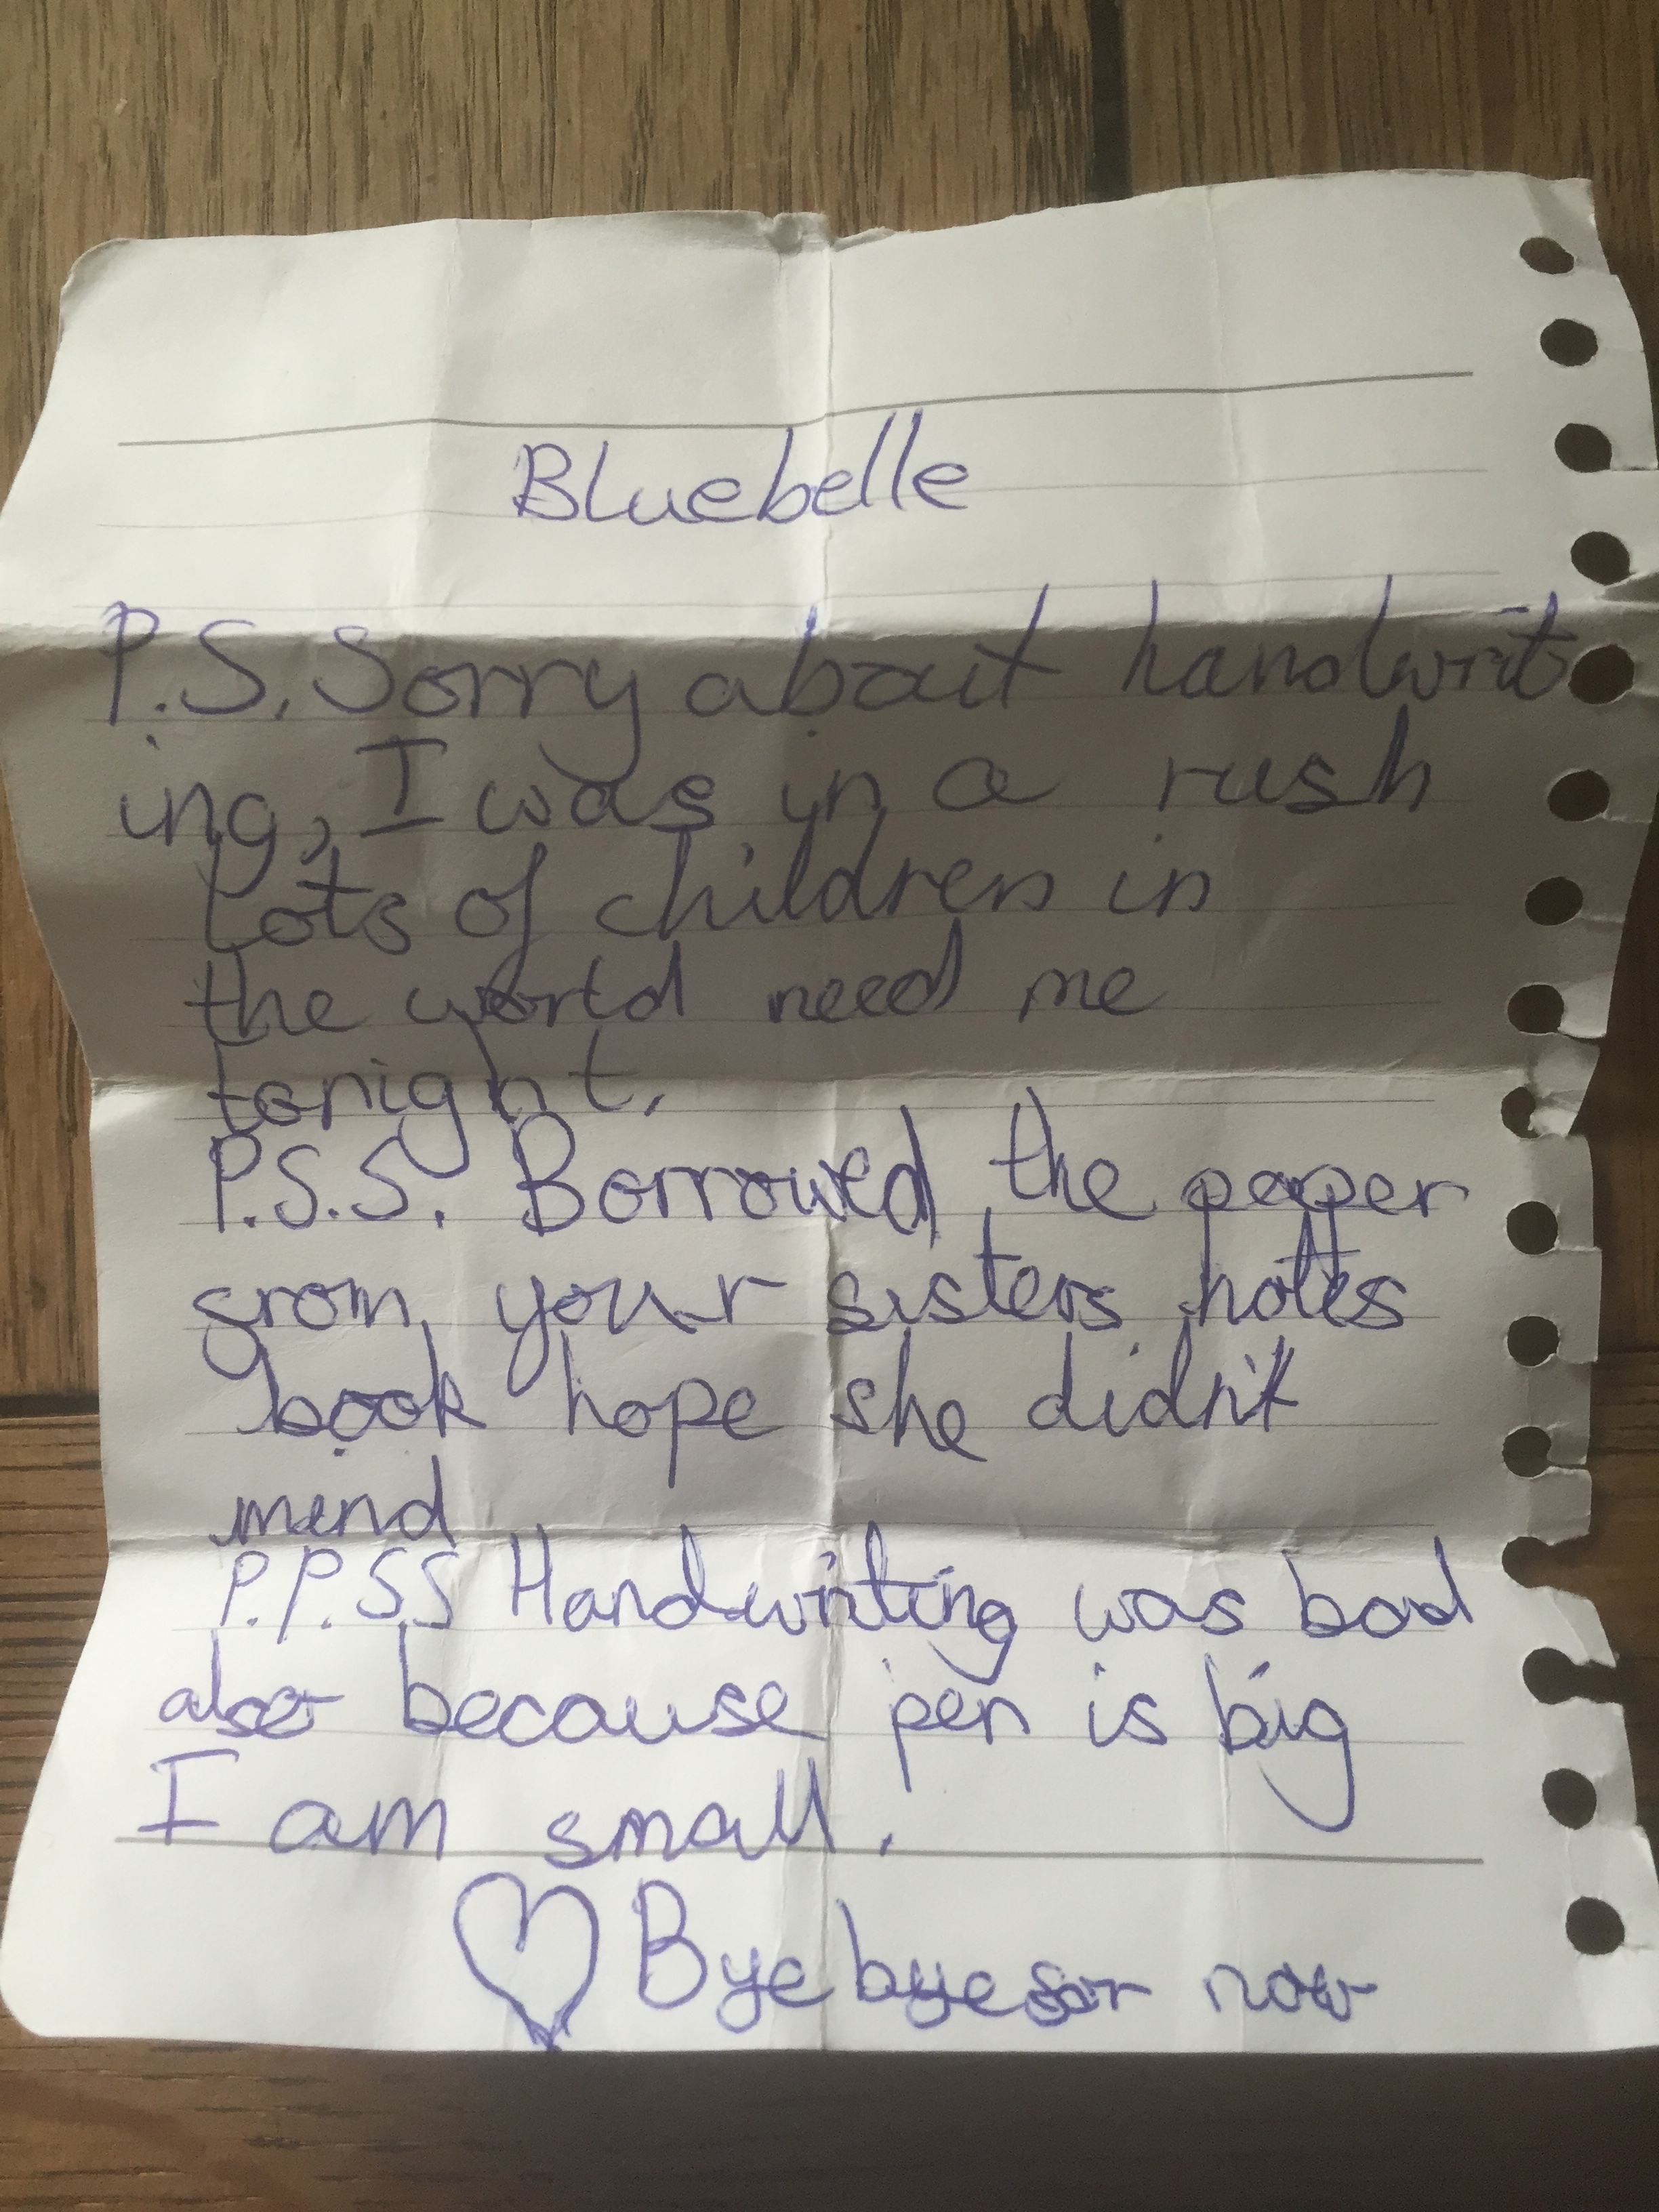 Bluebelle
P.S. Sorry about handwrit
ing, I was in a rush
lots of children in
the world need me
tonight.
P.S.S. Borrowed the paper
from your sisters notes
book hope she didn't
mind
P.P.S.S Handwriting was bad
also because pen is big
I am small.
Bye bye for now